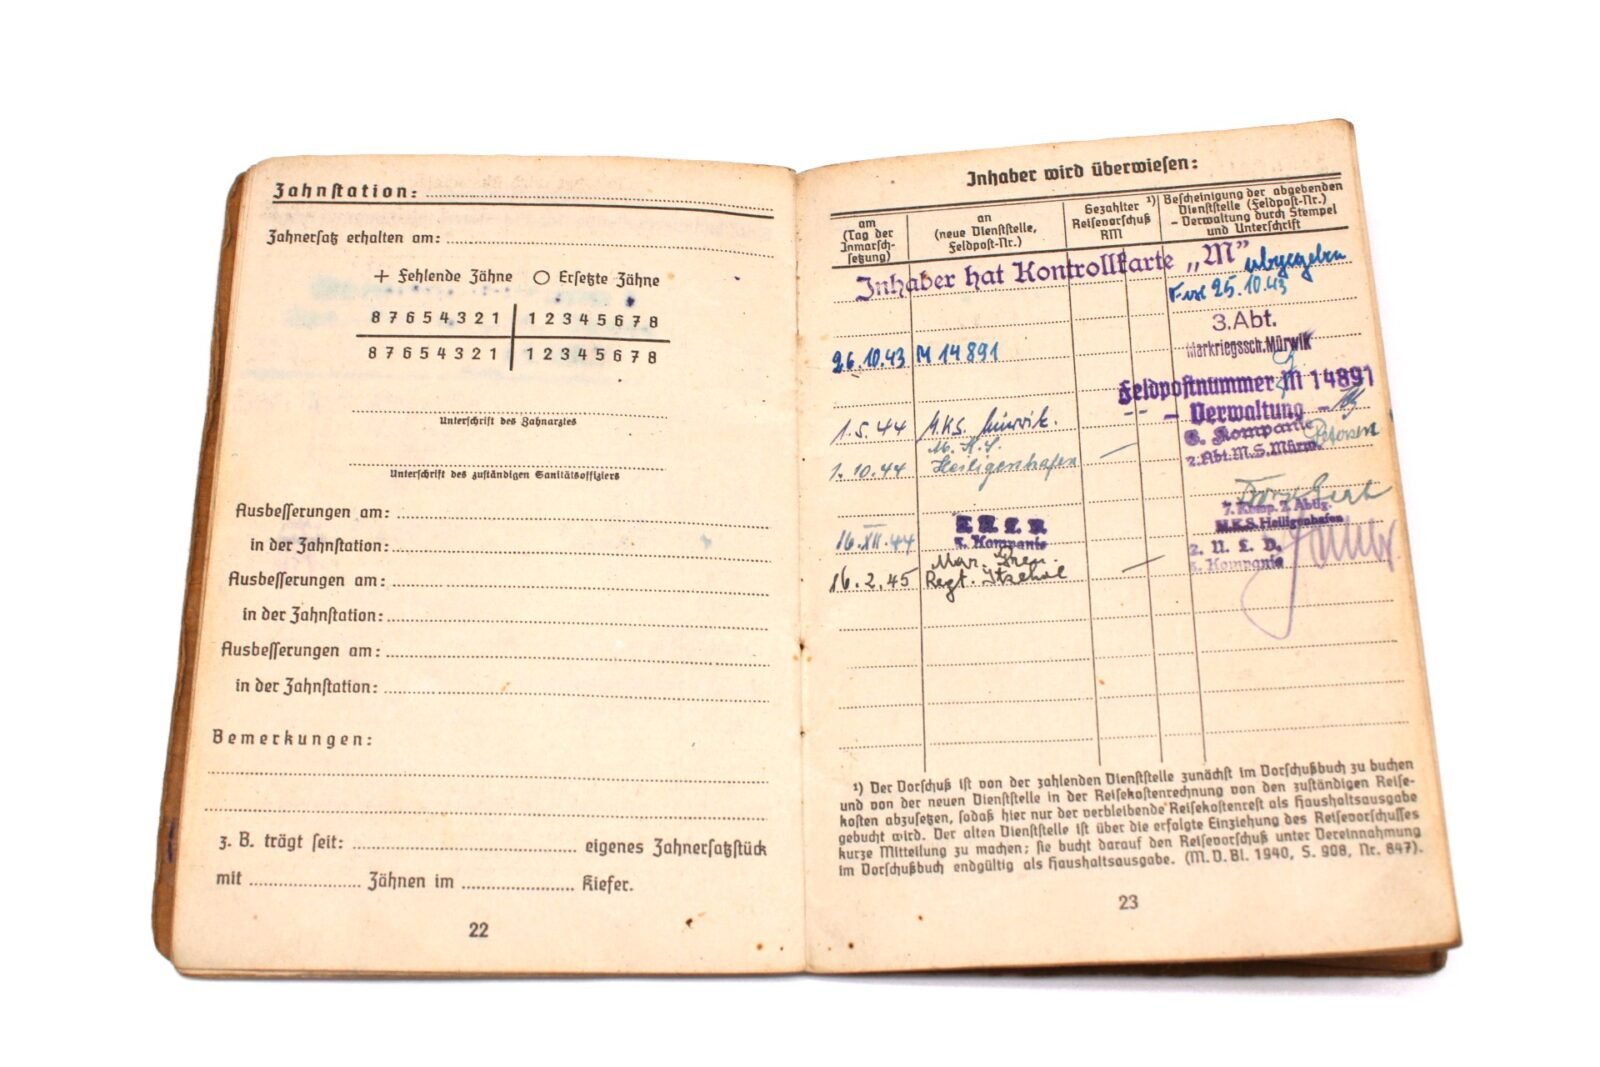 Zahnstation:
Zahnersatz erhalten am:
+ Fehlende Zähne O Ersetzte Zähne
8 7 6 5 4 3 2 1 1 2 3 4 5 6 7 8
8 7 6 5 4 3 2 1 1 2 3 4 5 6 7 8
Unterschrift des Zahnarztes
Unterschrift des zuständigen Sanitätsoffiziers
Ausbesserungen am:
in der Zahnstation:
Ausbesserungen am:
in der Zahnstation:
Ausbesserungen am:
in der Zahnstation:
Bemerkungen:
z. B. trägt seit: eigenes Zahnersatzstück
mit Zähnen im Kiefer.
22
Inhaber wird überwiesen:
am
(Tag der
Inmarsch-
setzung)
an
(neue Dienststelle,
Feldpost-Nr.)
Gezahlter ¹)
Reisevorschuß
RM
Bescheinigung der abgebenden
Dienststelle (Feldpost-Nr.)
- Verwaltung durch Stempel
und Unterschrift
Inhaber hat Kontrollkarte „M"
abgegeben
25.10.43
3. Abt.
Markriegssch. Mürwik
26.10.43 M 14891
Feldpostnummer M 14891
- Verwaltung -
1.5.44 M.K.S. Mürwik.
6. Kompanie
2. Abt. M.S. Mürw.
Petersen
1.10.44 M.K.S.
Heiligenhafen
7. Komp. 2. Abtlg.
M.K.S. Heiligenhafen
16.XII.44
Kompanie
2. U. L. D.
Kompanie
16.2.45 Mar. Gren.
Regt. Itzehoe
¹) Der Vorschuß ist von der zahlenden Dienststelle zunächst im Vorschußbuch zu buchen
und von der neuen Dienststelle in der Reisekostenrechnung von den zuständigen Reise-
kosten abzusetzen, sodaß hier nur der verbleibende Reisekostenrest als Haushaltsausgabe
gebucht wird. Der alten Dienststelle ist über die erfolgte Einziehung des Reisevorschusses
kurze Mitteilung zu machen; sie bucht darauf den Reisevorschuß unter Vereinnahmung
im Vorschußbuch endgültig als Haushaltsausgabe. (M. D. Bl. 1940, S. 908, Nr. 847).
23